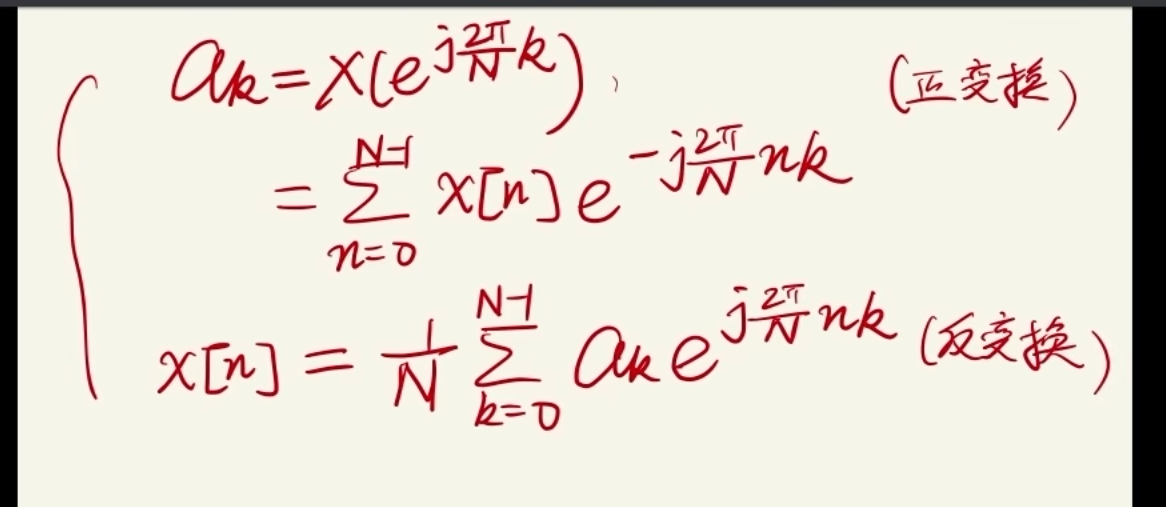 aₖ = X(e^{j\frac{2π}{N}k}), (正变换)
= \sum_{n=0}^{N-1} x[n] e^{-j\frac{2π}{N}nk}
x[n] = \frac{1}{N} \sum_{k=0}^{N-1} aₖ e^{j\frac{2π}{N}nk} (反变换)